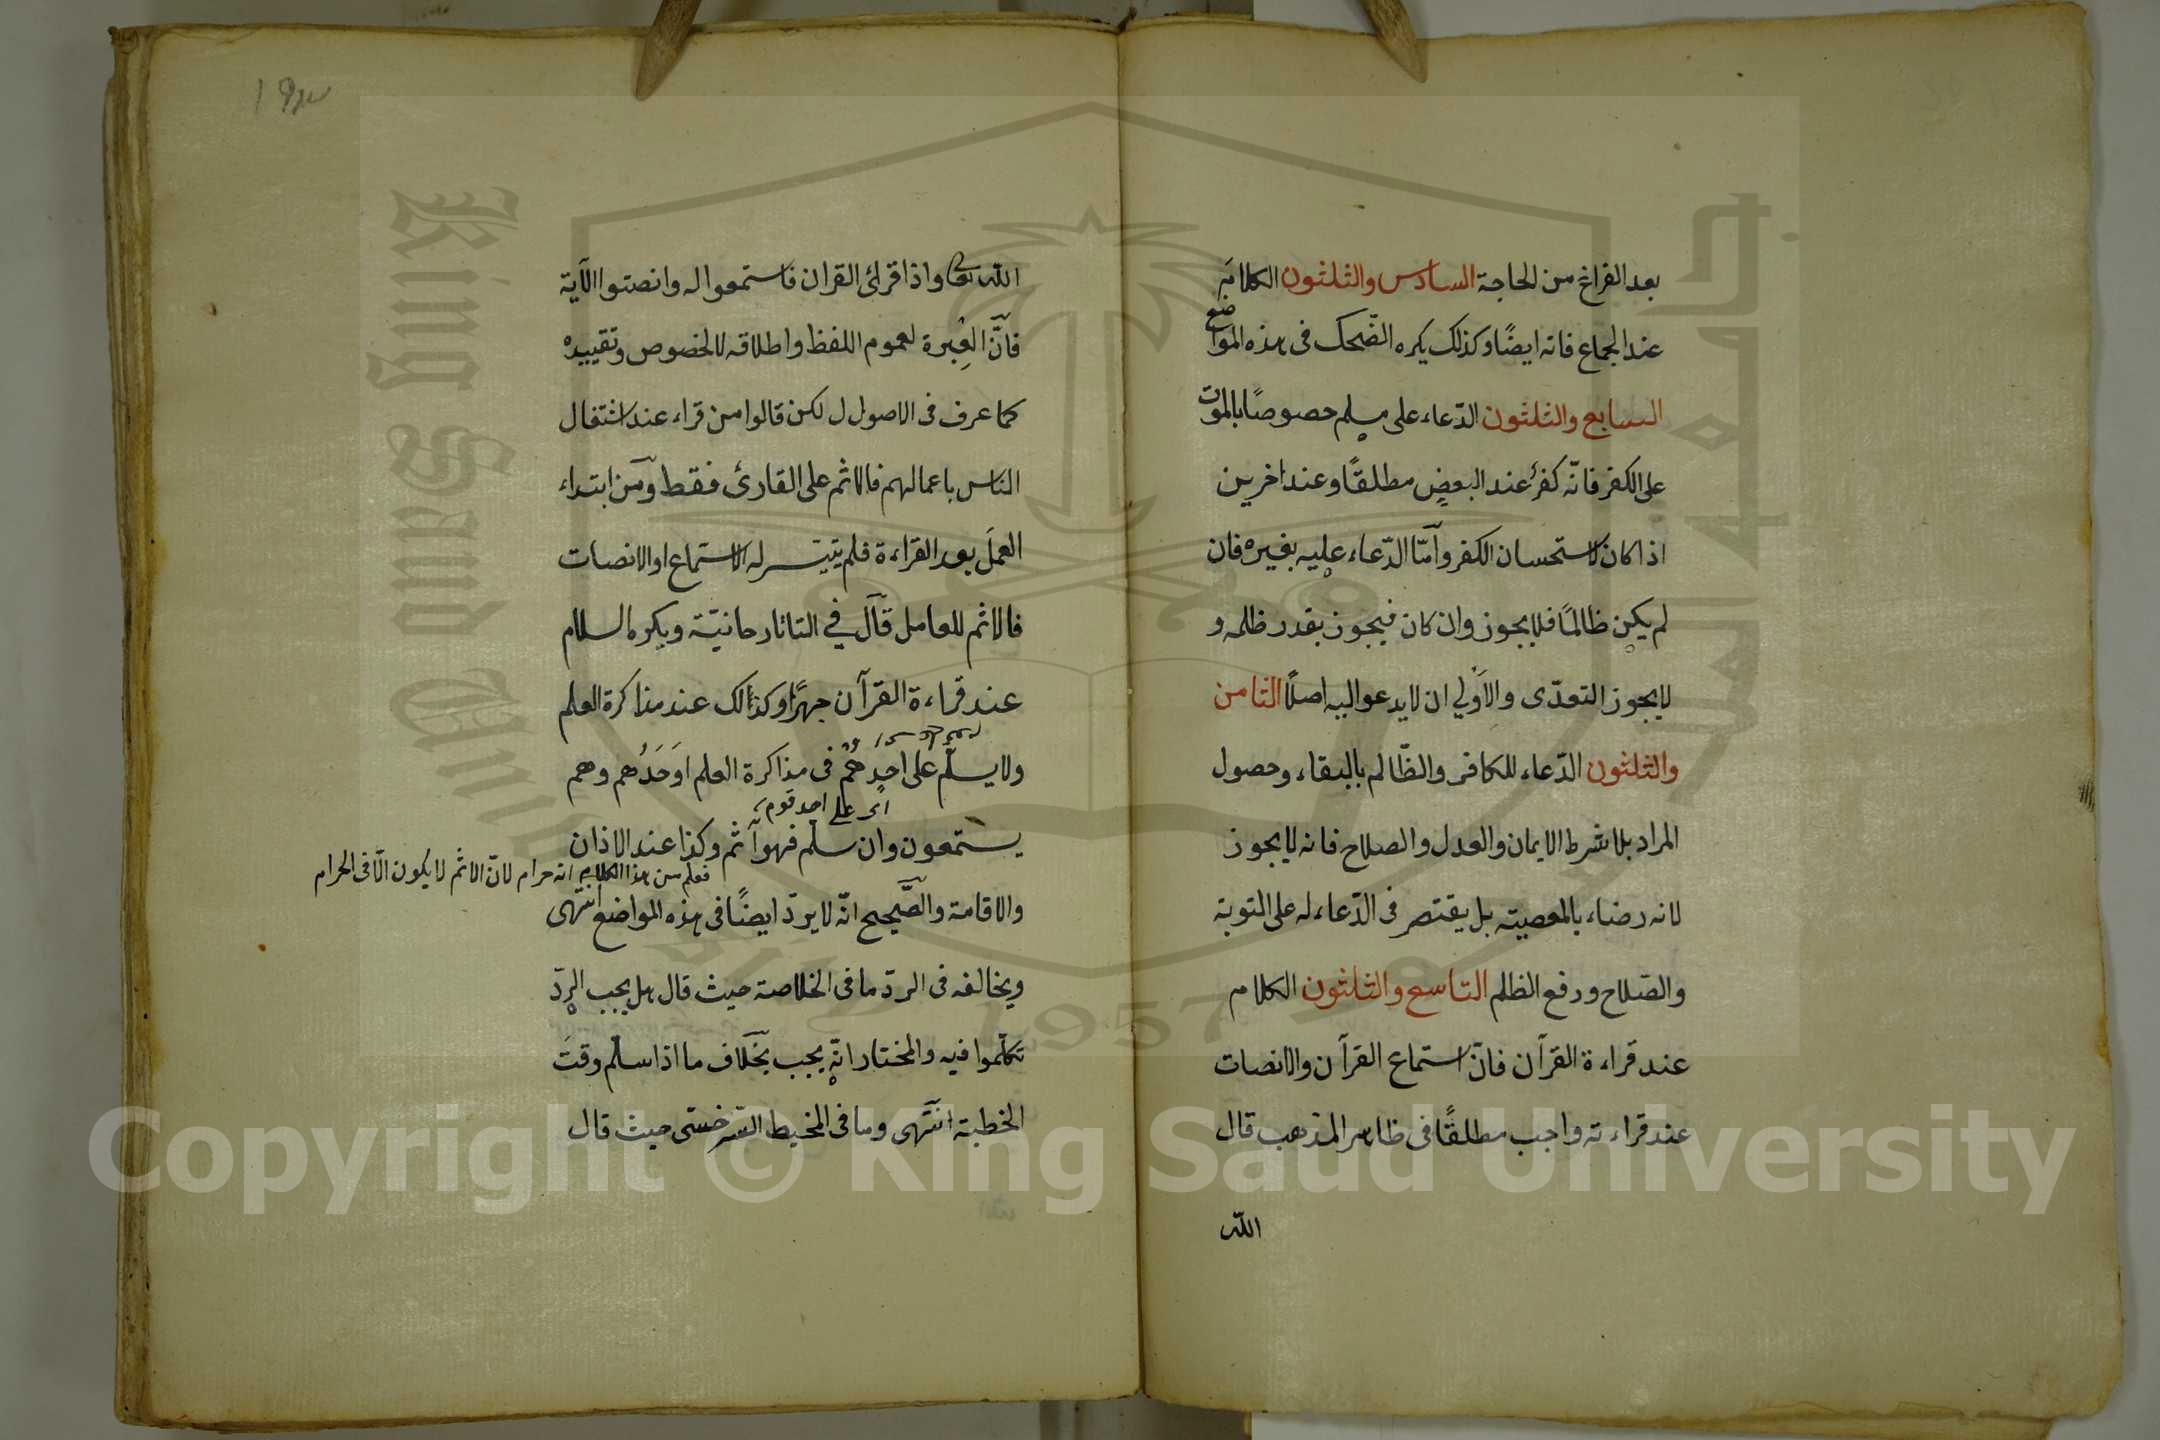 بعد الفراغ من الحاجة السادس والثلثون الكلام
عند الجماع فانه ايضًا وكذلك يكره الضّحك فى هذه المواضع
السابع والثلثون الدّعاء على مسلم خصوصًا بالموت
على الكفر فانّه كفر عند البعض مطلقًا وعند اخرين
اذا كان لاستحسان الكفر وامّا الدّعاء عليه بغيره فان
لم يكن ظالمًا فلا يجوز وان كان فيجوز بقدر ظلمه و
لا يجوز التعدّى والاَوْلي ان لا يدعو اليه اصلًا الثامن
والثلثون الدّعاء للكافر والظّالم بالبقاء وحصول
المراد بلا شرط الايمان والعدل والصلاح فانه لا يجوز
لانه رضاء بالمعصيته بل يقتصر فى الدّعاء له على التوبة
والصّلاح ورفع الظلم التاسع والثلثون الكلام
عند قراءة القرآن فانّ استماع القرآن والانصات
عند قراءته واجب مطلقًا فى ظاهر المذهب قال
الله
١٩٣
الله تعالى واذا قرئ القران فاستمعوا له وانصتوا الآية
فانّ العِبرة لعموم اللفظ واطلاقه لا لخصوص وتقييده
كما عرف فى الاصول ل لكن قالوا من قراء عند اشتغال
الناس باعمالهم فالاثم على القارئ فقط ومن ابتداء
العمل بعد القراءة فلم يتيسر له الاستماع او الانصات
فالاثم للعامل قال في التاتارخانيّة ويكره السلام
عند قراءة القرآن جهرًا وكذالك عند مذاكرة العلم
ولا يسلّم على احدِهُمْ فى مذاكرة العلم اوَحَدُهم وهم
اى على احد قوم
يستمعون وان سلّم فهو آثم وكذا عند الاذان
فعلم من هذا الكلام انه حرام لانّ الاثم لا يكون الّا فى الحرام
والاقامة والصّحيح انّه لا يردّ ايضًا فى هذه المواضع انتهى
ويخالفه فى الردّ ما فى الخلاصة حيث قال هل يجب الردّ
تكلّموا فيه والمختار انّه يجب بخلاف ما اذا سلّم وقتَ
الخطبة انتهى وما فى المحيط السّرخسّى حيث قال
King Saud University
1957
Copyright © King Saud University